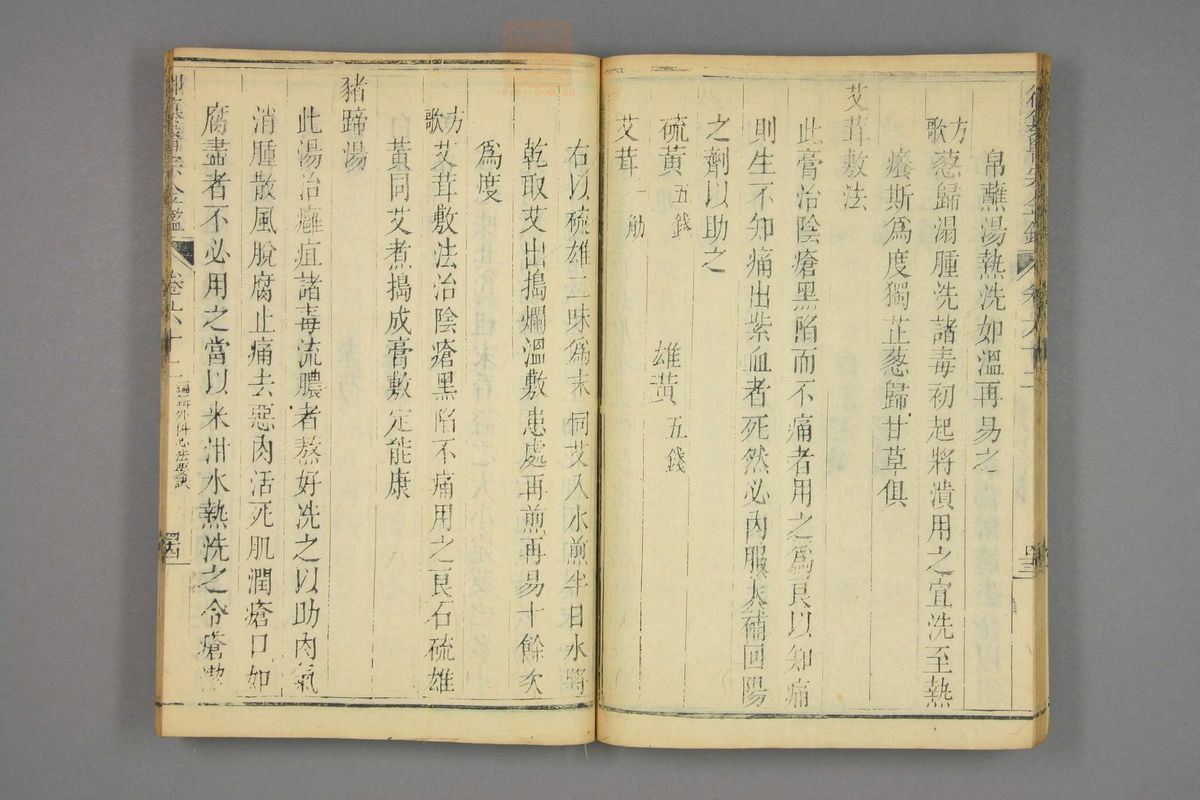 帛蘸湯熱洗如溫再易之
方歌 葱歸溻腫洗諸毒初起將潰用之宜洗至熱
癢斯爲度獨芷葱歸甘草俱
艾茸敷法
此膏治陰瘡黑陷而不痛者用之爲良以知痛
則生不知痛出紫血者死然必內服大補回陽
之劑以助之
硫黃五錢 雄黃五錢
艾茸一觔
右以硫雄二味爲末同艾入水煎半日水將
乾取艾出搗爛溫敷患處再煎再易十餘次
爲度
方歌 艾茸敷法治陰瘡黑陷不痛用之良石硫雄
黃同艾煮搗成膏敷定能康
豬蹄湯
此湯治癰疽諸毒流膿者熬好洗之以助肉氣
消腫散風脫腐止痛去惡肉活死肌潤瘡口如
腐盡者不必用之當以米泔水熱洗之令瘡潔
御纂醫宗金鑑 卷六十二 編輯外科心法要訣